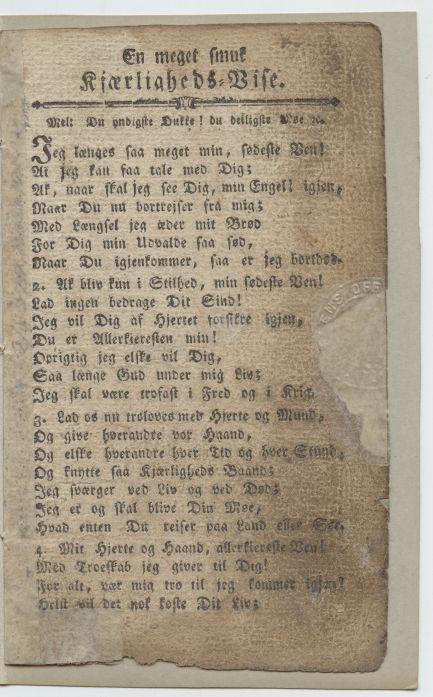 En meget smuk
Kjærligheds-Vise.
Mel: Du yndigste Dukke! du deiligste Møe ꝛc.
Jeg længes saa meget min, sødeste Ven!
At jeg kan faa tale med Dig;
Ak, naar skal jeg see Dig, min Engel! igjen,
Naar Du nu bortrejser fra mig;
Med Længsel jeg æder mit Brød
For Dig min Udvalde saa sød,
Naar Du igjenkommer, saa er jeg bortdøe.
2. Ak bliv kun i Stilhed, min sødeste Ven!
Lad ingen bedrage Dit Sind!
Jeg vil Dig af Hjertet forsikre igjen,
Du er Allerkieresten min!
Oprigtig jeg elske vil Dig,
Saa længe Gud under mig Liv;
Jeg skal være trofast i Fred og i Krig.
3. Lad os nu troloves med Hjerte og Mund,
Og give hverandre vor Haand,
Og elske hverandre hver Tid og hver Stund,
Og knytte saa Kjærligheds Baand;
Jeg sværger ved Liv og ved Død;
Jeg er og skal blive Din Møe,
Hvad enten Du reiser paa Land eller Søe.
4. Mit Hjerte og Haand, allerkiereste Ven!
Med Troeskab jeg giver til Dig!
For alt, vær mig tro til jeg kommer igjen!
Helst vil det nok koste Dit Liv;